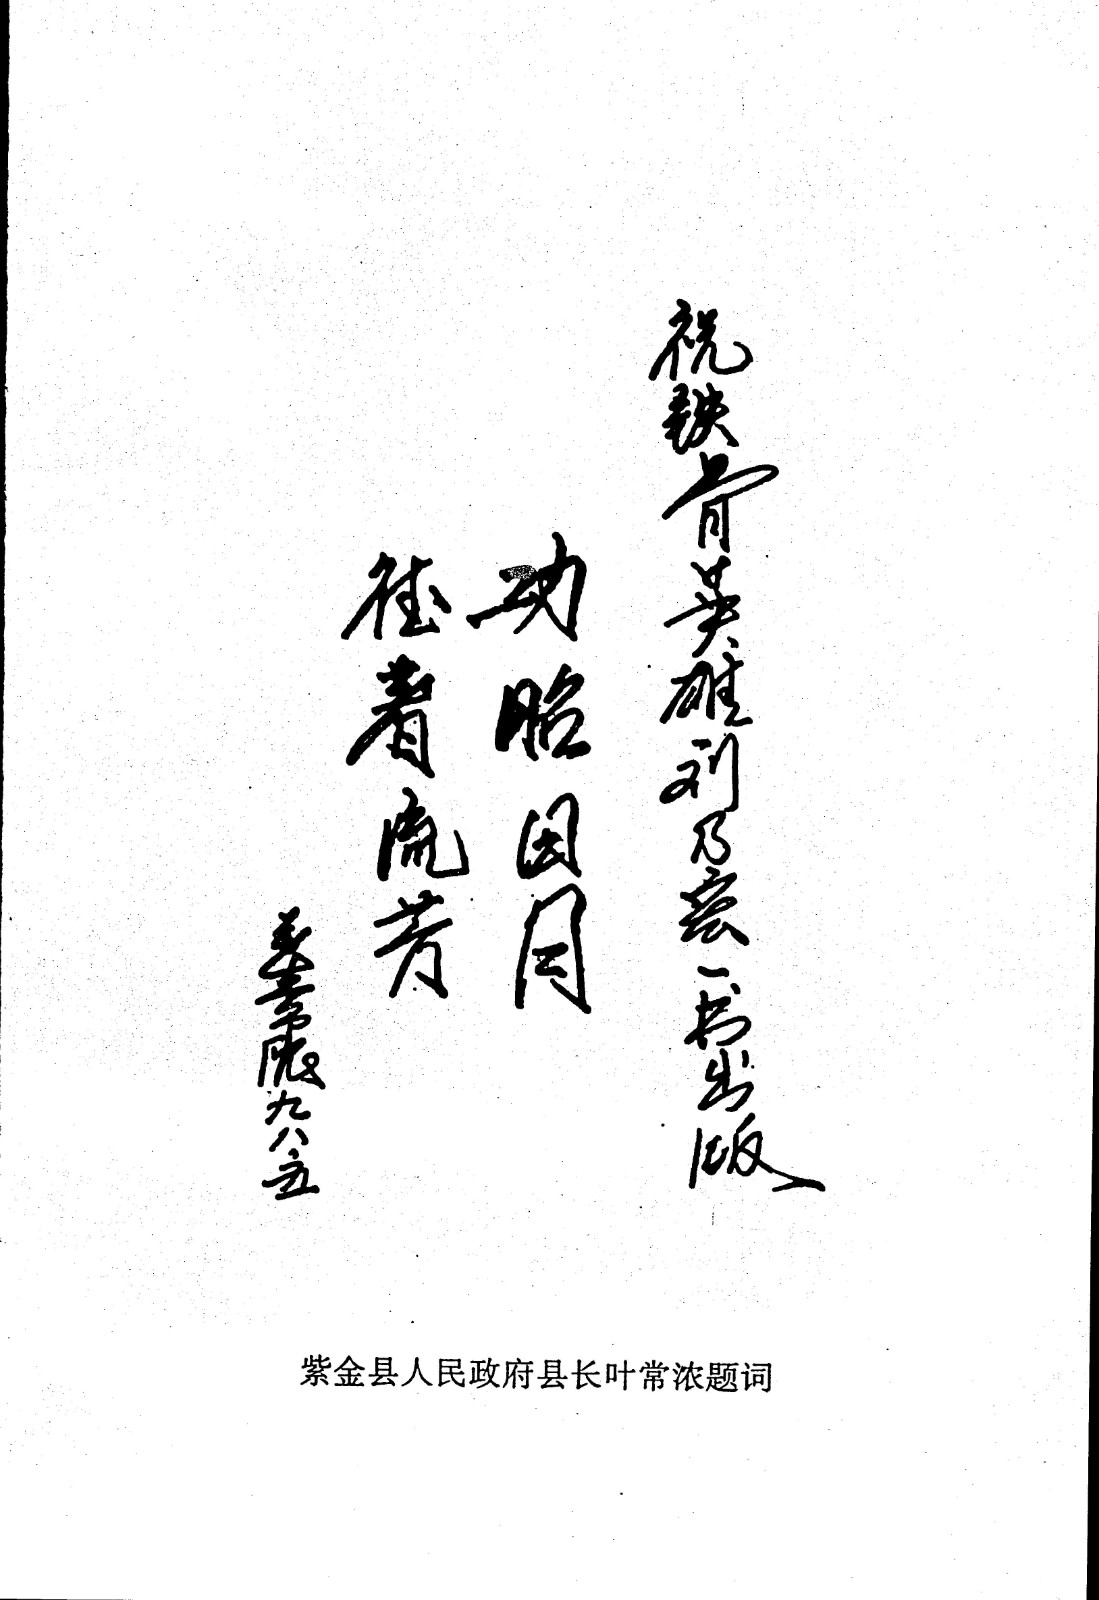 祝铁骨英雄刘乃宏一书出版
功昭日月
德者流芳
叶常浓九八.五
紫金县人民政府县长叶常浓题词